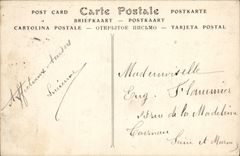 POST CARD Carte Postale POSTKARTE
BRIEFKAART — POSTKAART
CARTOLINA POSTALE — ОТКРЫТОЕ ПИСЬМО — TARJETA POSTAL
Affectueux
Mademoiselle
Eug. Flammier
rue de la Madeleine
Seine et Marne